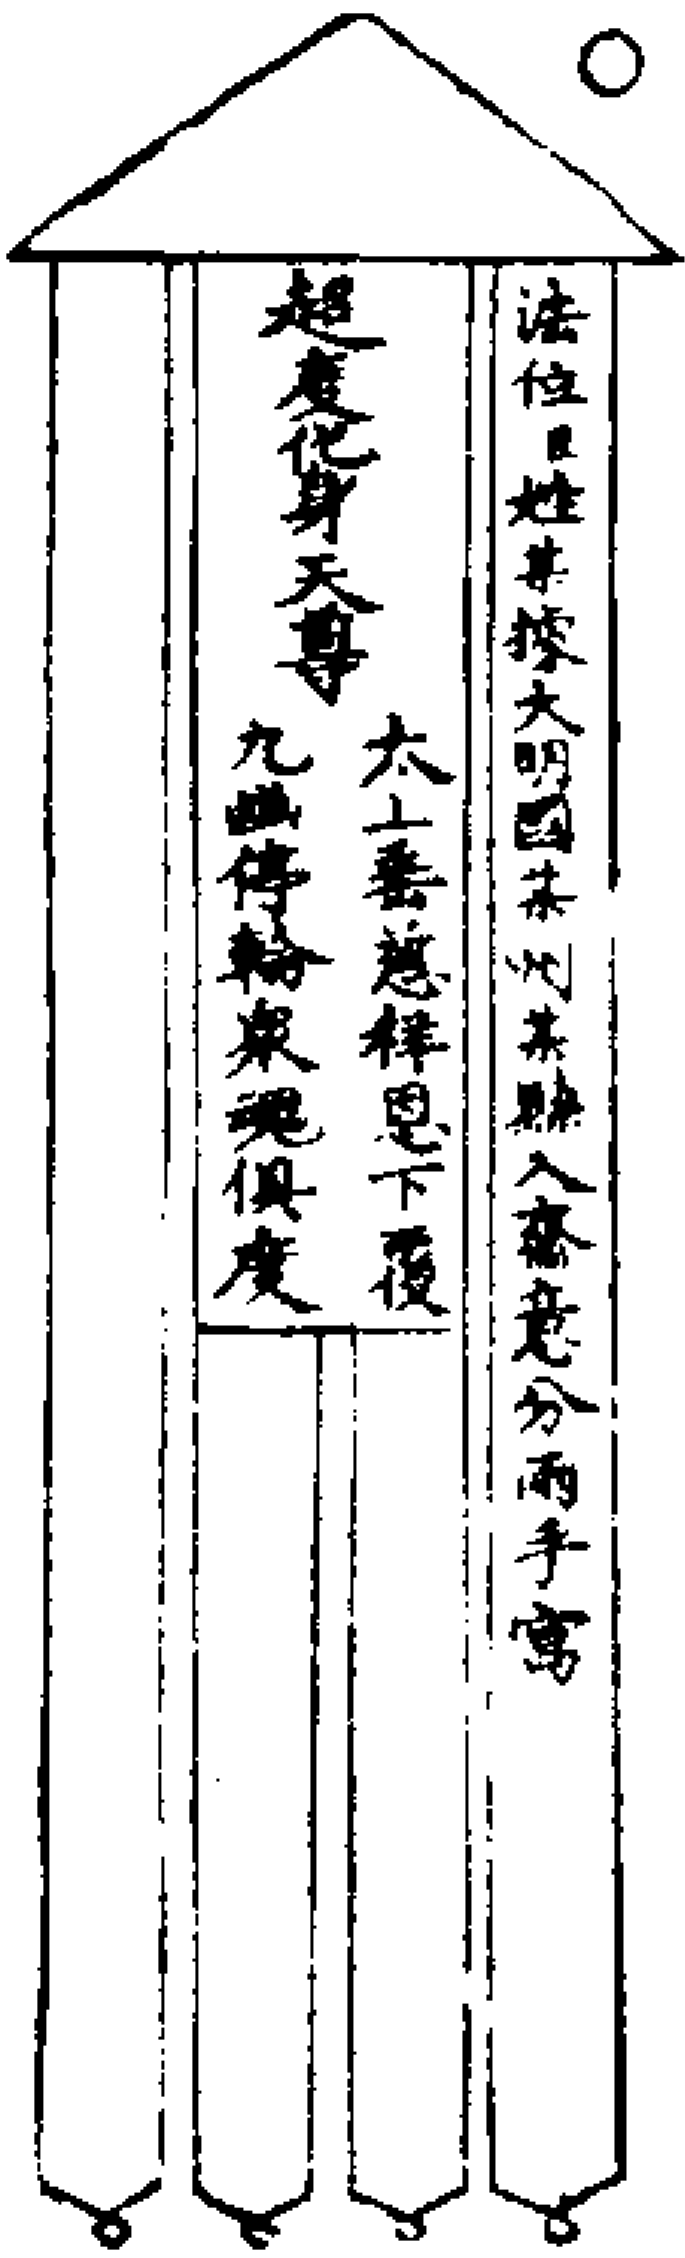 法位臣姓某據大明國某某縣入意分兩手寫
超度化身天尊
太上垂慈祥恩下覆
九幽停輪衆魂俱度